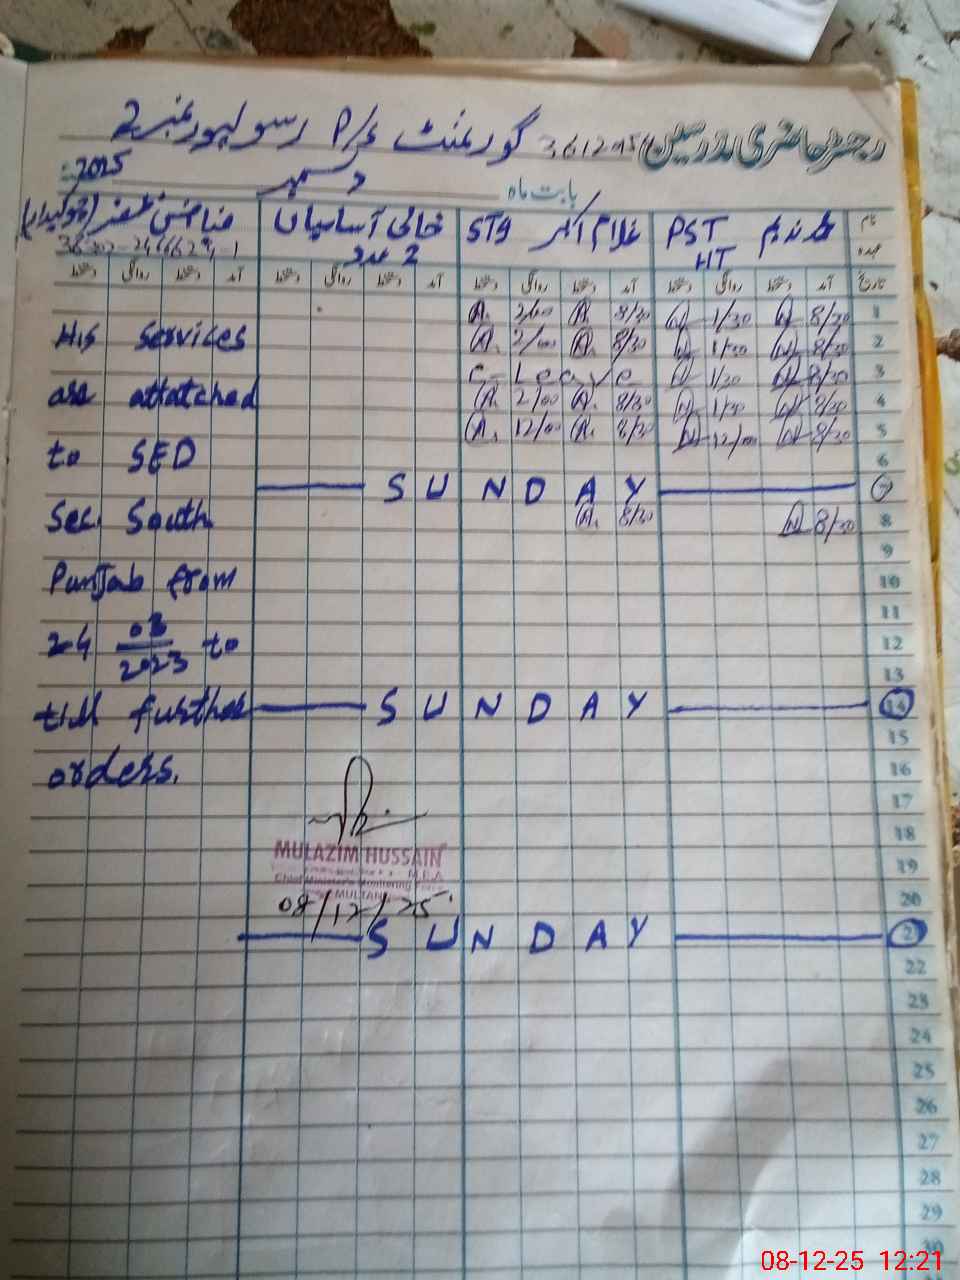 رجسٹر حاضری مدرسین گورنمنٹ P/S رسولپور نمبر 2
بابت ماہ دسمبر 2025
نام عہدہ PST HT غلام اکبر ST9 خالی آسامیاں 2 عدد (چوکیدار)
تاریخ آمد دستخط روانگی دستخط آمد دستخط روانگی دستخط آمد دستخط روانگی دستخط آمد دستخط روانگی دستخط
1 8/30 1/30 8/30 A. 2/00 A.
2 8/30 1/30 8/30 A. 2/00 A.
His Services
3 8/30 1/30 C-Leave
4 8/30 1/30 8/30 A. 2/00 A.
are attatched
5 8/30 12/00 8/30 A. 12/00 A.
6
to SED
7 SUNDAY
8 8/30 8/30 A.
Sec. South
9
10
Punjab from
11
12
24 03/2023 to
13
14 SUNDAY
till further
15
16
orders.
17
18
MULAZIM HUSSAIN
19
M.E.A
Chief Minister's Monitoring Force
MULTAN
20
08/12/25
2 SUNDAY
22
23
24
25
26
27
28
29
30
08-12-25 12:21